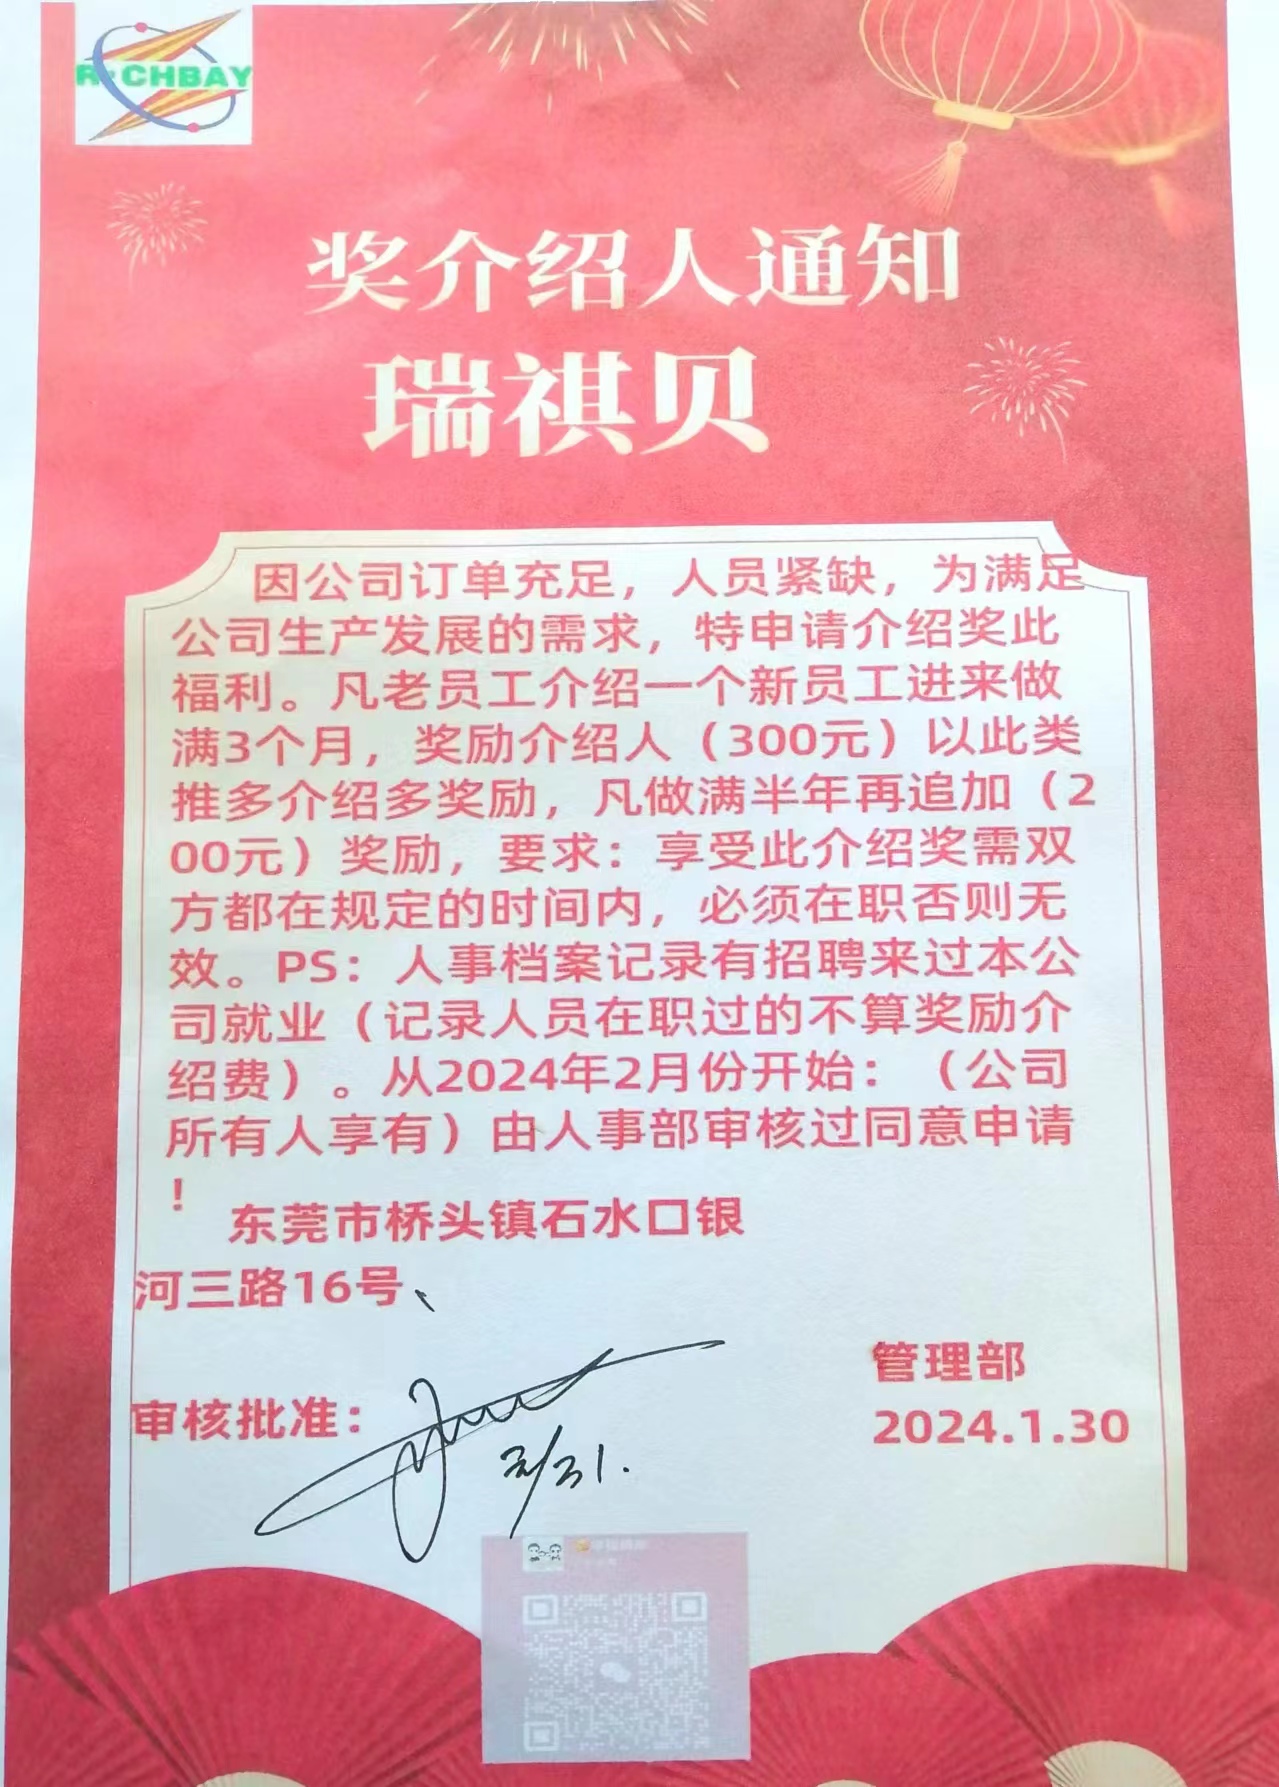 RICHBAY
奖介绍人通知
瑞祺贝
因公司订单充足，人员紧缺，为满足
公司生产发展的需求，特申请介绍奖此
福利。凡老员工介绍一个新员工进来做
满3个月，奖励介绍人（300元）以此类
推多介绍多奖励，凡做满半年再追加（2
00元）奖励，要求：享受此介绍奖需双
方都在规定的时间内，必须在职否则无
效。PS：人事档案记录有招聘来过本公
司就业（记录人员在职过的不算奖励介
绍费）。从2024年2月份开始：（公司
所有人享有）由人事部审核过同意申请
！
东莞市桥头镇石水口银
河三路16号、
管理部
审核批准：
2024.1.30